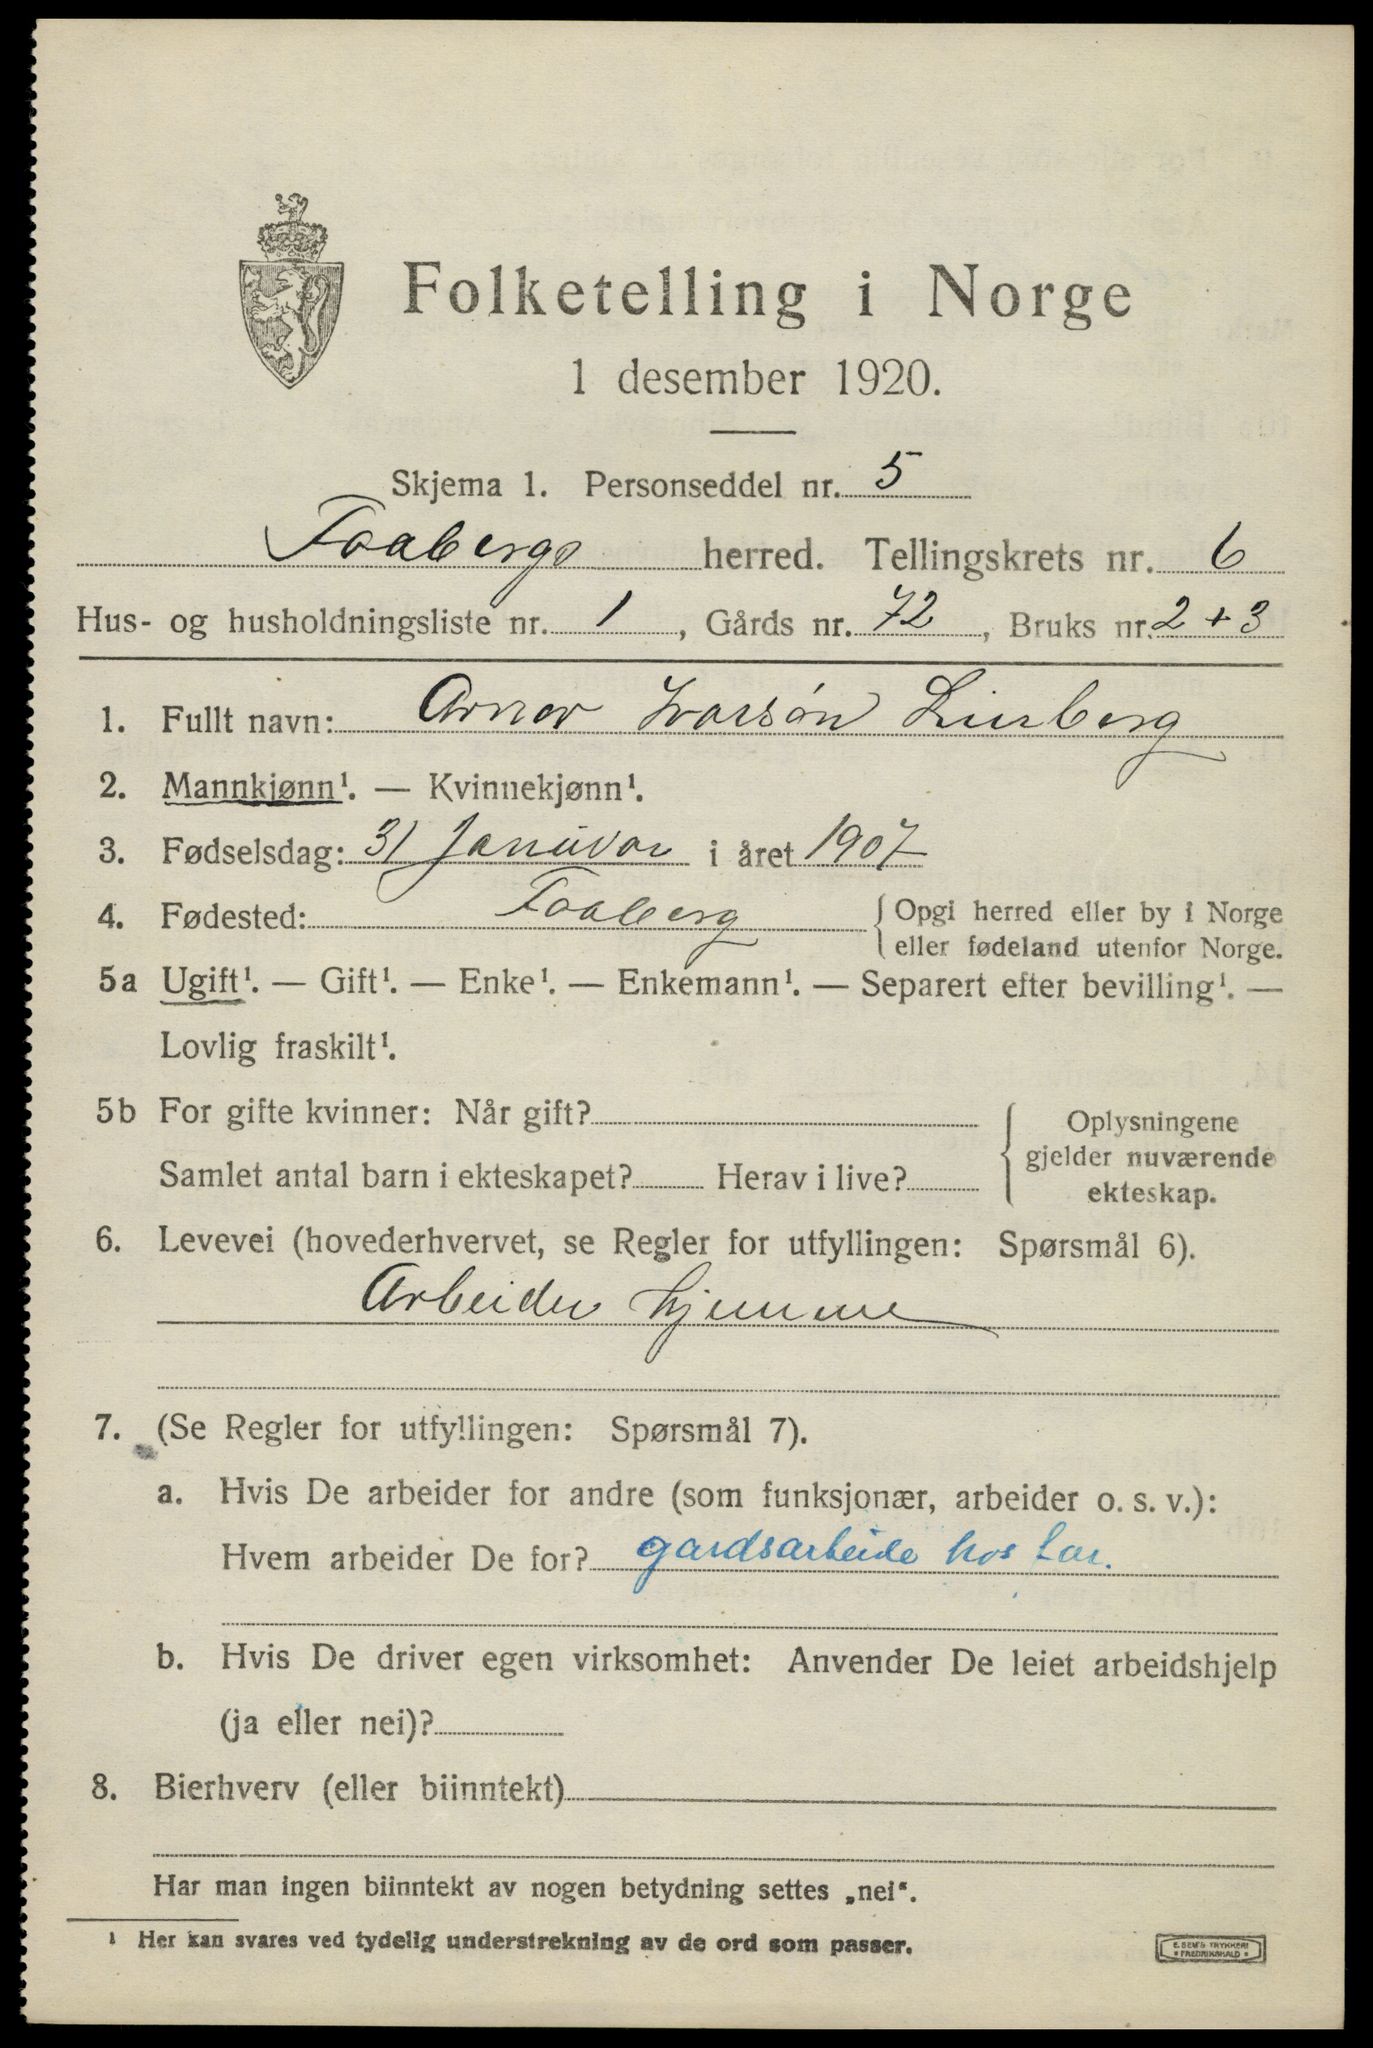 Folketelling i Norge
1 desember 1920.
Skjema 1. Personseddel nr. 5
Faabergs herred. Tellingskrets nr. 6
Hus- og husholdningsliste nr. 1, Gårds nr. 72, Bruks nr. 2 + 3
1. Fullt navn: Arner Ivarsøn Linberg
2. Mannkjønn¹. — Kvinnekjønn¹.
3. Fødselsdag: 31 Januvar i året 1907
4. Fødested: Faaberg { Opgi herred eller by i Norge
eller fødeland utenfor Norge.
5a Ugift¹. — Gift¹. — Enke¹. — Enkemann¹. — Separert efter bevilling¹. —
Lovlig fraskilt¹.
5b For gifte kvinner: Når gift? { Oplysningene
gjelder nuværende
Samlet antal barn i ekteskapet? Herav i live? ekteskap.
6. Levevei (hovederhvervet, se Regler for utfyllingen: Spørsmål 6).
Arbeider hjemme
7. (Se Regler for utfyllingen: Spørsmål 7).
a. Hvis De arbeider for andre (som funksjonær, arbeider o. s. v.):
Hvem arbeider De for? gardsarbeide hos far.
b. Hvis De driver egen virksomhet: Anvender De leiet arbeidshjelp
(ja eller nei)?
8. Bierhverv (eller biinntekt)
Har man ingen biinntekt av nogen betydning settes „nei“.
¹ Her kan svares ved tydelig understrekning av de ord som passer.
E. SEM'S TRYKKERI
• FREDRIKSHALD •